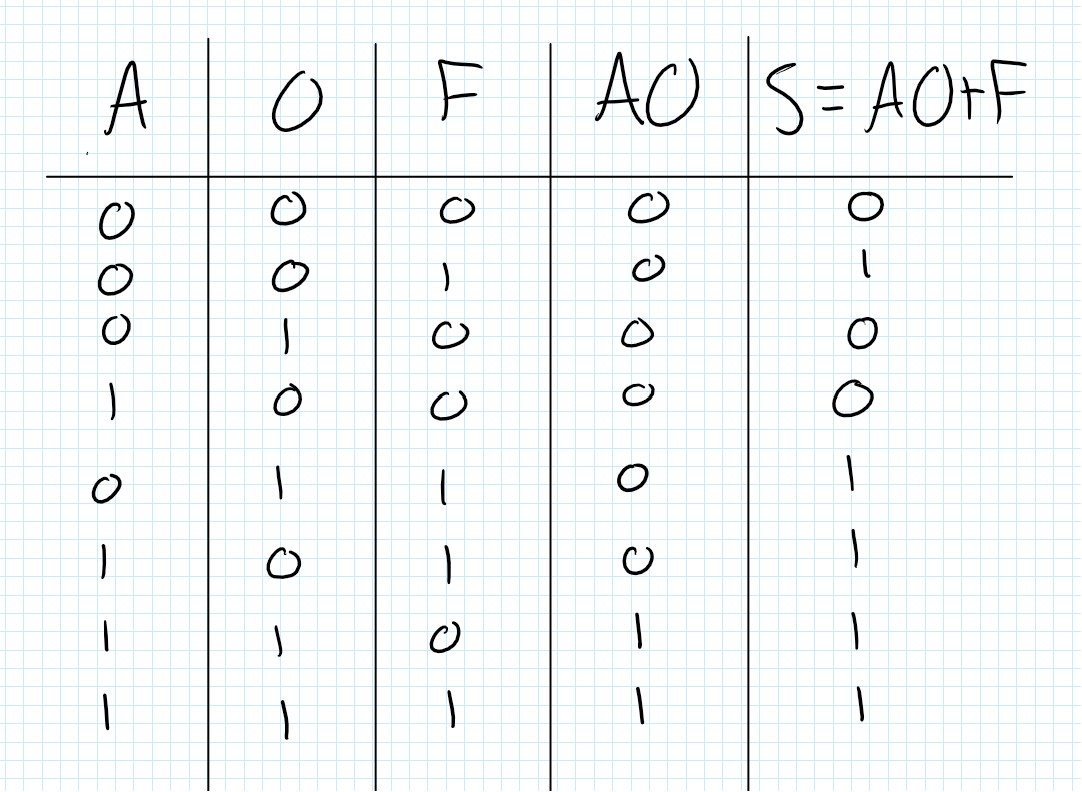 A O F AO S = AO+F
0 0 0 0 0
0 0 1 0 1
0 1 0 0 0
1 0 0 0 0
0 1 1 0 1
1 0 1 0 1
1 1 0 1 1
1 1 1 1 1